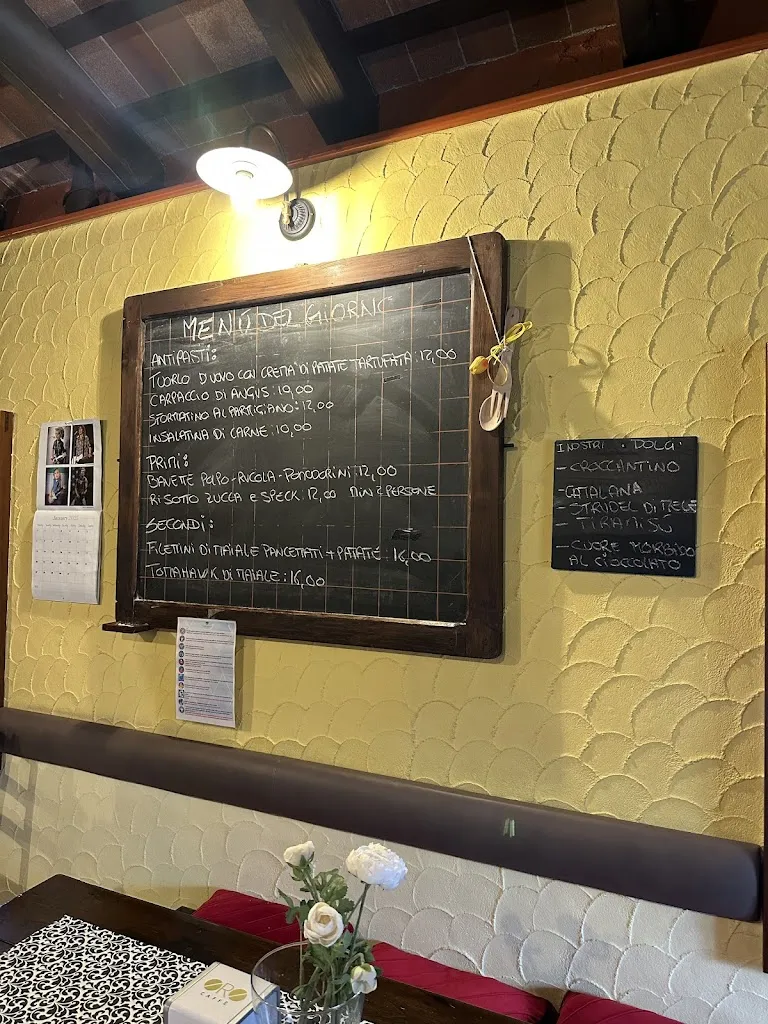 MENÙ DEL GIORNO
ANTIPASTI:
TUORLO D'UOVO CON CREMA DI PATATE TARTUFATA: 12,00
CARPACCIO DI ANGUS: 10,00
SFORMATINO AL PARTIGIANO: 12,00
INSALATINA DI CARNE: 10,00
PRIMI:
BAVETTE POLPO-RUCOLA-POMODORINI: 12,00
RISOTTO ZUCCA E SPECK: 12,00 MIN 2 PERSONE
SECONDI:
FILETTINI DI MAIALE PANCETTATI + PATATE: 16,00
TOMAHAWK DI MAIALE: 16,00
I NOSTRI DOLCI
- CROCCANTINO
- CATALANA
- STRUDEL DI MELE
- TIRAMISU
- CUORE MORBIDO
AL CIOCCOLATO
ORO
CAFFÈ